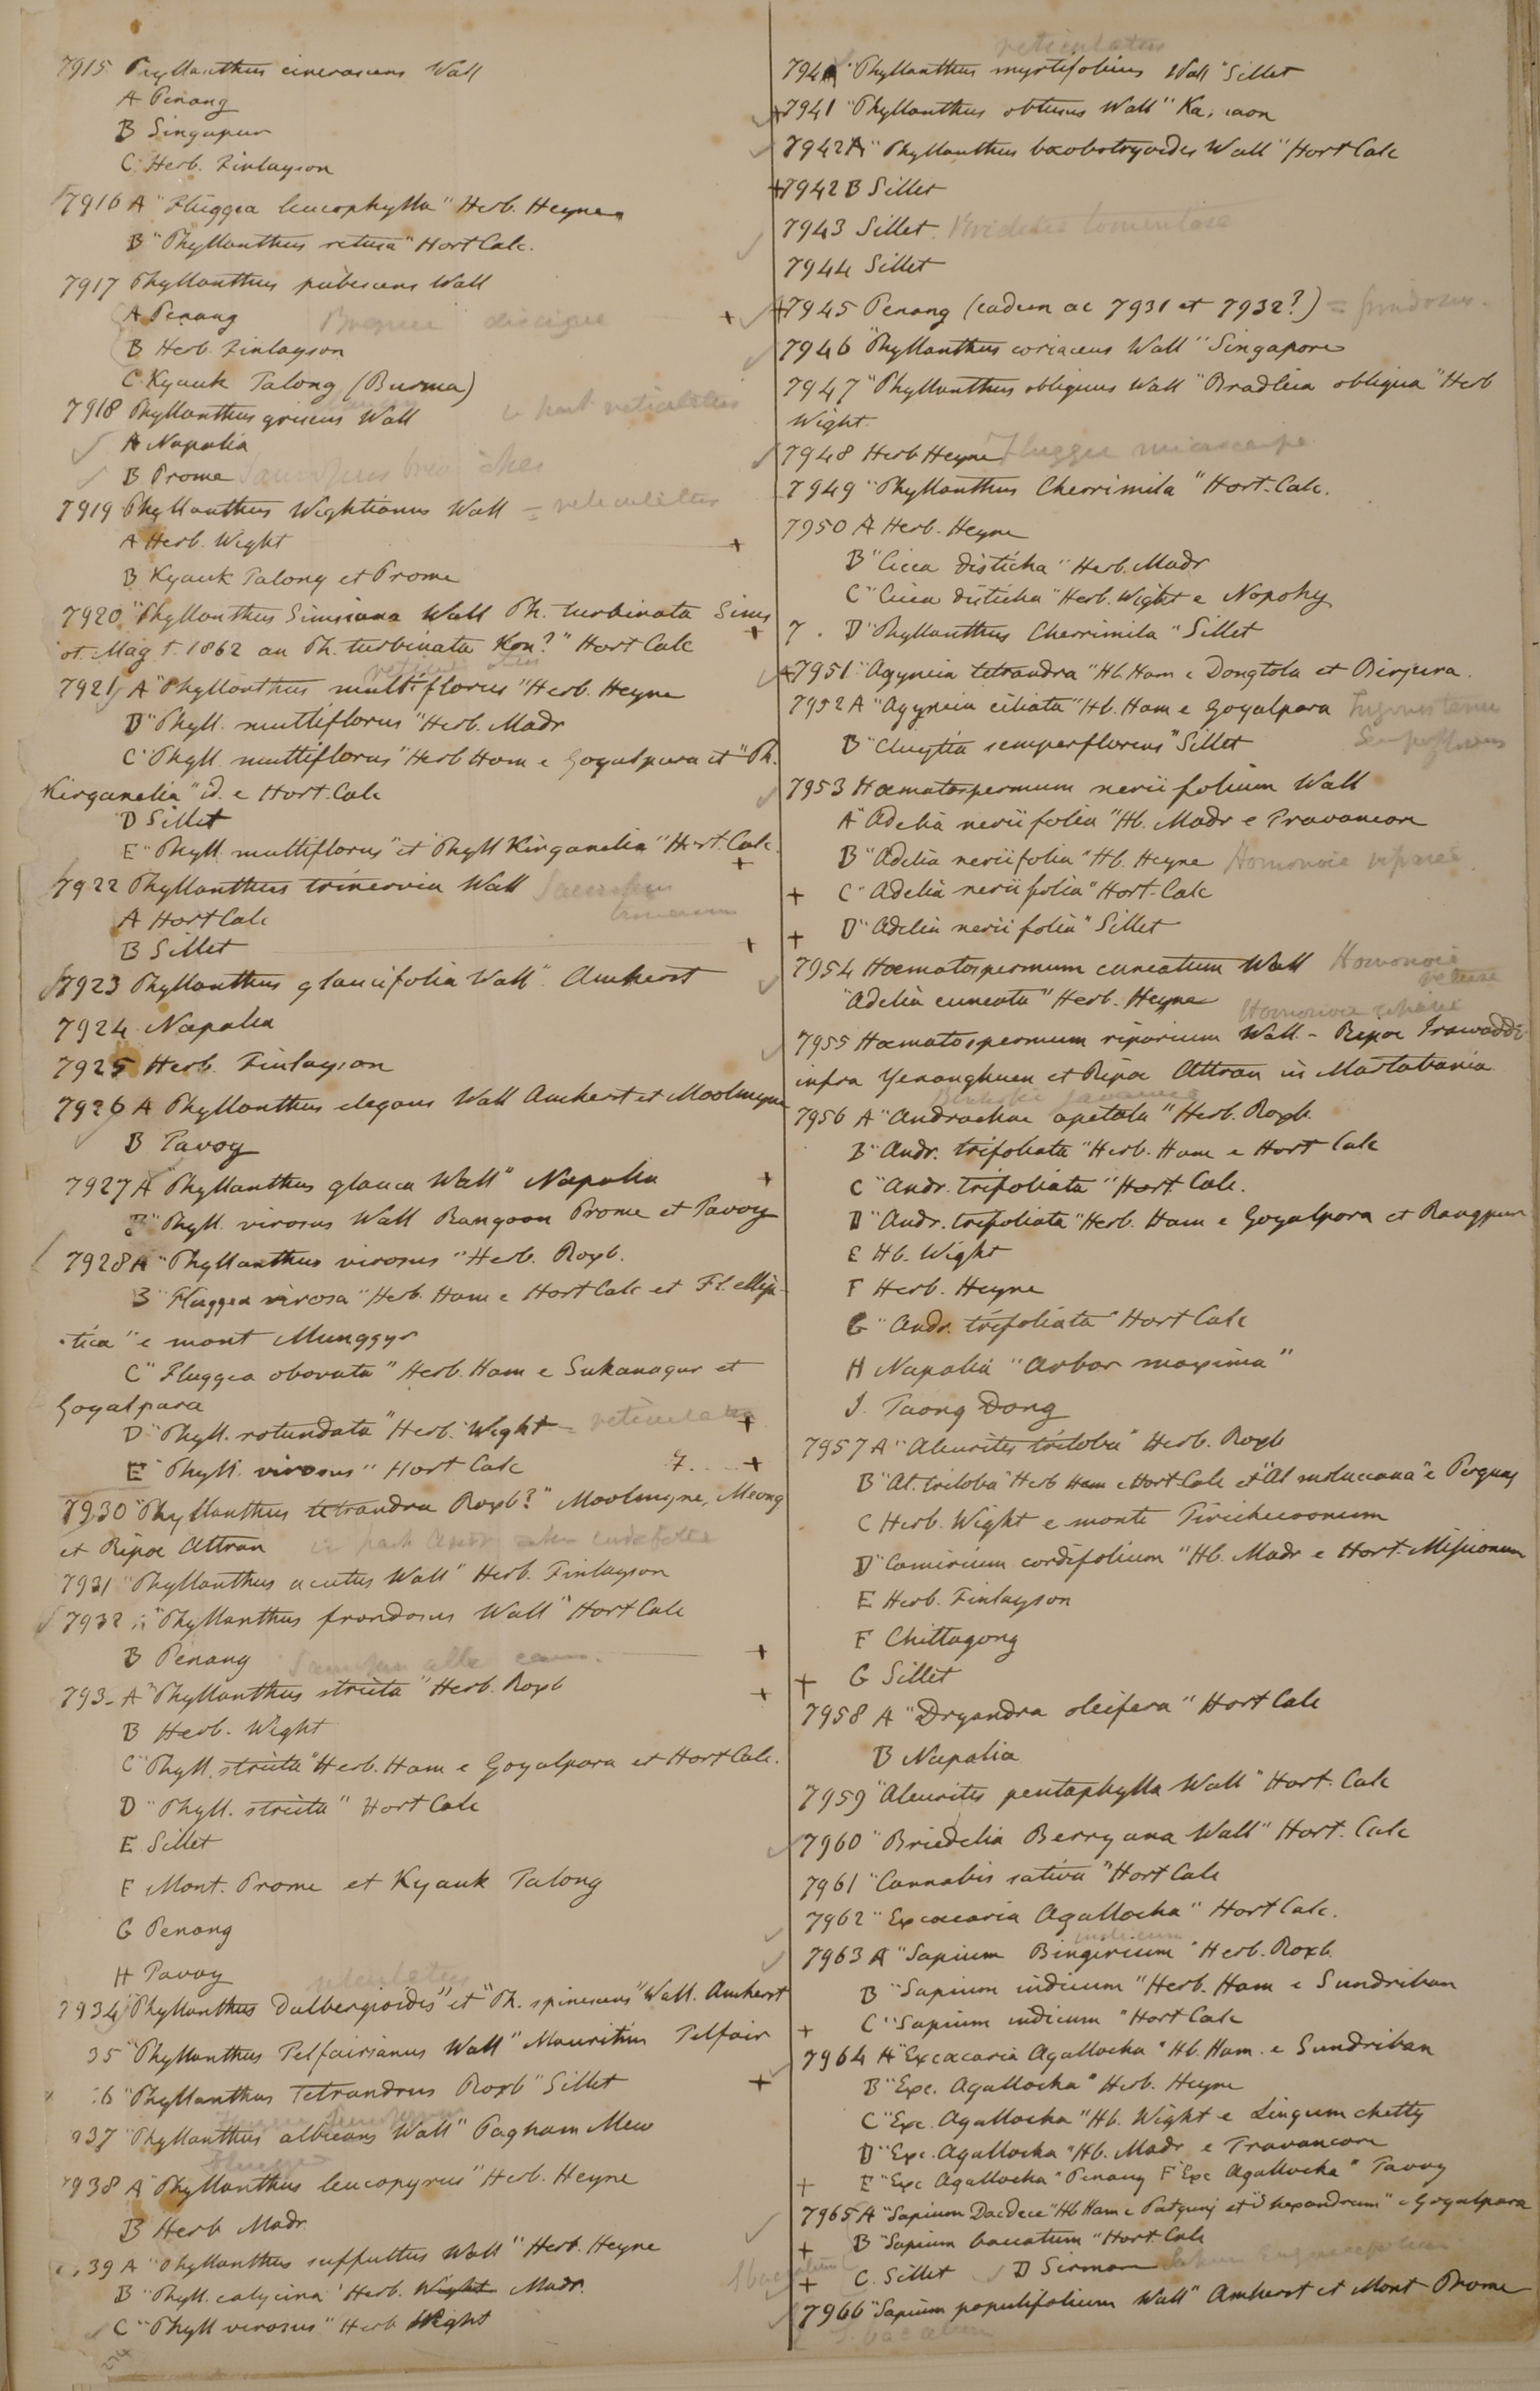 7915 Phyllanthus cinerascens Wall
A Penang
B Singapur
C. Herb. Finlayson
7916 A "Fluggea leucophylla" Herb. Heyne
B "Phyllanthus retusa" Hort Calc.
7917 Phyllanthus pubescens Wall
A Penang
B Herb. Finlayson
C Kyauk Talong (Burma)
7918 Phyllanthus griseus Wall in part reticulatus
A Napalia
B Prome Sauropus
7919 Phyllanthus Wightianus Wall = reticulatus
A Herb. Wight +
B Kyauk Talong et Prome
7920 "Phyllanthus Simsiana Wall Ph. turbinata Sims
ot. Mag t. 1862 an Ph. turbinata Kon?" Hort Calc +
7921 A "Phyllanthus multiflorus" Herb. Heyne
B "Phyll. multiflorus" Herb. Madr
C "Phyll. multiflorus" Herb Ham e Goyalpara et "Ph.
Kirganelia" id. e Hort. Calc
D Sillet
E "Phyll. multiflorus" et Phyll Kirganelia" Hort. Calc. +
7922 Phyllanthus trinervia Wall Sauropus
A Hort Calc
B Sillet +
7923 Phyllanthus glaucifolia Wall" Amherst
7924 Napalia
7925 Herb. Finlayson
7926 A Phyllanthus elegans Wall Amherst et Moolmyne
B Tavoy
7927 A "Phyllanthus glauca Wall" Napalia +
B "Phyll. virosus Wall Rangoon Prome et Tavoy
7928 A "Phyllanthus virosus" Herb. Roxb.
B "Fluggea virosa" Herb. Ham e Hort Calc et Fl. ellip-
-tica" e mont Munggyr
C "Fluggea obovata" Herb. Ham e Sukanagur et
Goyalpara
D "Phyll. rotundata" Herb. Wight = reticulatus +
E "Phyll. virosus" Hort Calc 7. +
7930 "Phyllanthus tetrandra Roxb?" Moolmyne, Meong
et Ripae Attran in part
7931 "Phyllanthus acutus Wall" Herb. Finlayson
7932 A "Phyllanthus frondosus Wall" Hort Calc
B Penang +
793- A "Phyllanthus stricta" Herb. Roxb +
B Herb. Wight
C "Phyll. stricta" Herb. Ham e Goyalpara et Hort Calc.
D "Phyll. stricta" Hort Calc
E Sillet
F Mont. Prome et Kyauk Talong
G Penang
H Tavoy
reticulatus
7934 "Phyllanthus Dalbergioides" et "Ph. spinescens" Wall. Amherst
35 "Phyllanthus Telfairianus Wall" Mauritius Telfair
36 "Phyllanthus Tetrandrus Roxb" Sillet +
937 "Phyllanthus albicans Wall" Pagham Mew
Fluggea
7938 A "Phyllanthus leucopyrus" Herb. Heyne
B Herb Madr
39 A "Phyllanthus suffultus Wall" Herb. Heyne
B "Phyll. calycina" Herb. Wight Madr.
C "Phyll virosus" Herb Wight
reticulatus
794 "Phyllanthus myrtifolius Wall" Sillet
+7941 "Phyllanthus obtusus Wall"
7942 A "Phyllanthus baeobotryoides Wall" Hort Calc
+7942 B Sillet
7943 Sillet. Briedelia tomentosa
7944 Sillet
+7945 Penang (eadem ac 7931 et 7932?) = frondosus.
7946 "Phyllanthus coriaceus Wall" Singapore
7947 "Phyllanthus obliquus Wall "Bradleia obliqua" Herb
Wight.
7948 Herb Heyne Fluggea microcarpa
7949 "Phyllanthus Cherrimila" Hort. Calc.
7950 A Herb. Heyne
B "Cicca disticha" Herb. Madr
C "Cicca disticha" Herb. Wight e Nopohy
7. D "Phyllanthus Cherrimila" Sillet
+7951 "Agyneia tetrandra" Hb. Ham e Dongtola et Birjura.
7952 A "Agyneia ciliata" Hb. Ham e Goyalpara Trigonostemon
B "Cluytia semperflorens" Sillet Semperflorens
7953 Haematospermum neriifolium Wall
A "Adelia neriifolia" Hb. Madr e Travancore
B "Adelia neriifolia" Hb. Heyne Homonoia riparia
+ C "Adelia neriifolia" Hort. Calc
+ D "Adelia neriifolia" Sillet
7954 Haematospermum cuneatum Wall Homonoia retusa
"Adelia cuneata" Herb. Heyne
Homonoia riparia
7955 Haematospermum riparium Wall - Ripae Irawaddi
infra Yenanghuen et Ripae Attran in Martabania
Bischofia javanica
7956 A "Andrachne apetala" Herb. Roxb.
B "Andr. trifoliata" Herb. Ham e Hort Calc
C "Andr. trifoliata" Hort. Calc.
D "Andr. trifoliata" Herb. Ham e Goyalpara et Rangpur
E Hb. Wight
F Herb. Heyne
G "Andr. trifoliata" Hort Calc
H Napalia "Arbor maxima"
J. Taong Dong
7957 A "Aleurites triloba" Herb. Roxb
B "Al. triloba" Herb Ham e Hort Calc et "Al moluccana" e
C Herb. Wight e monte
D "Camirium cordifolium" Hb. Madr e Hort. Missionum
E Herb. Finlayson
F Chittagong
+ G Sillet
7958 A "Dryandra oleifera" Hort Calc
B Napalia
7959 "Aleurites pentaphylla Wall" Hort. Calc
7960 "Briedelia Berryana Wall" Hort. Calc
7961 "Cannabis sativa" Hort Calc
7962 "Excoecaria Agallocha" Hort Calc.
indicum
7963 A "Sapium Bingerium" Herb. Roxb.
B "Sapium indicum" Herb. Ham e Sundriban
+ C "Sapium indicum" Hort Calc
7964 A "Excoecaria Agallocha" Hb. Ham. e Sundriban
B "Exc. Agallocha" Herb. Heyne
C "Exc. Agallocha" Hb. Wight e Lingum chetty
D "Exc. Agallocha" Hb. Madr e Travancore
+ E "Exc Agallocha" Penang F "Exc Agallocha" Tavoy
7965 A "Sapium Dacdece" Hb Ham e Patgunj et "S hexandrum" e Goyalpara
+ B "Sapium baccatum" Hort. Calc
+ C. Sillet D Sirmore
7966 "Sapium populifolium Wall" Amherst et Mont Prome
S. baccatum